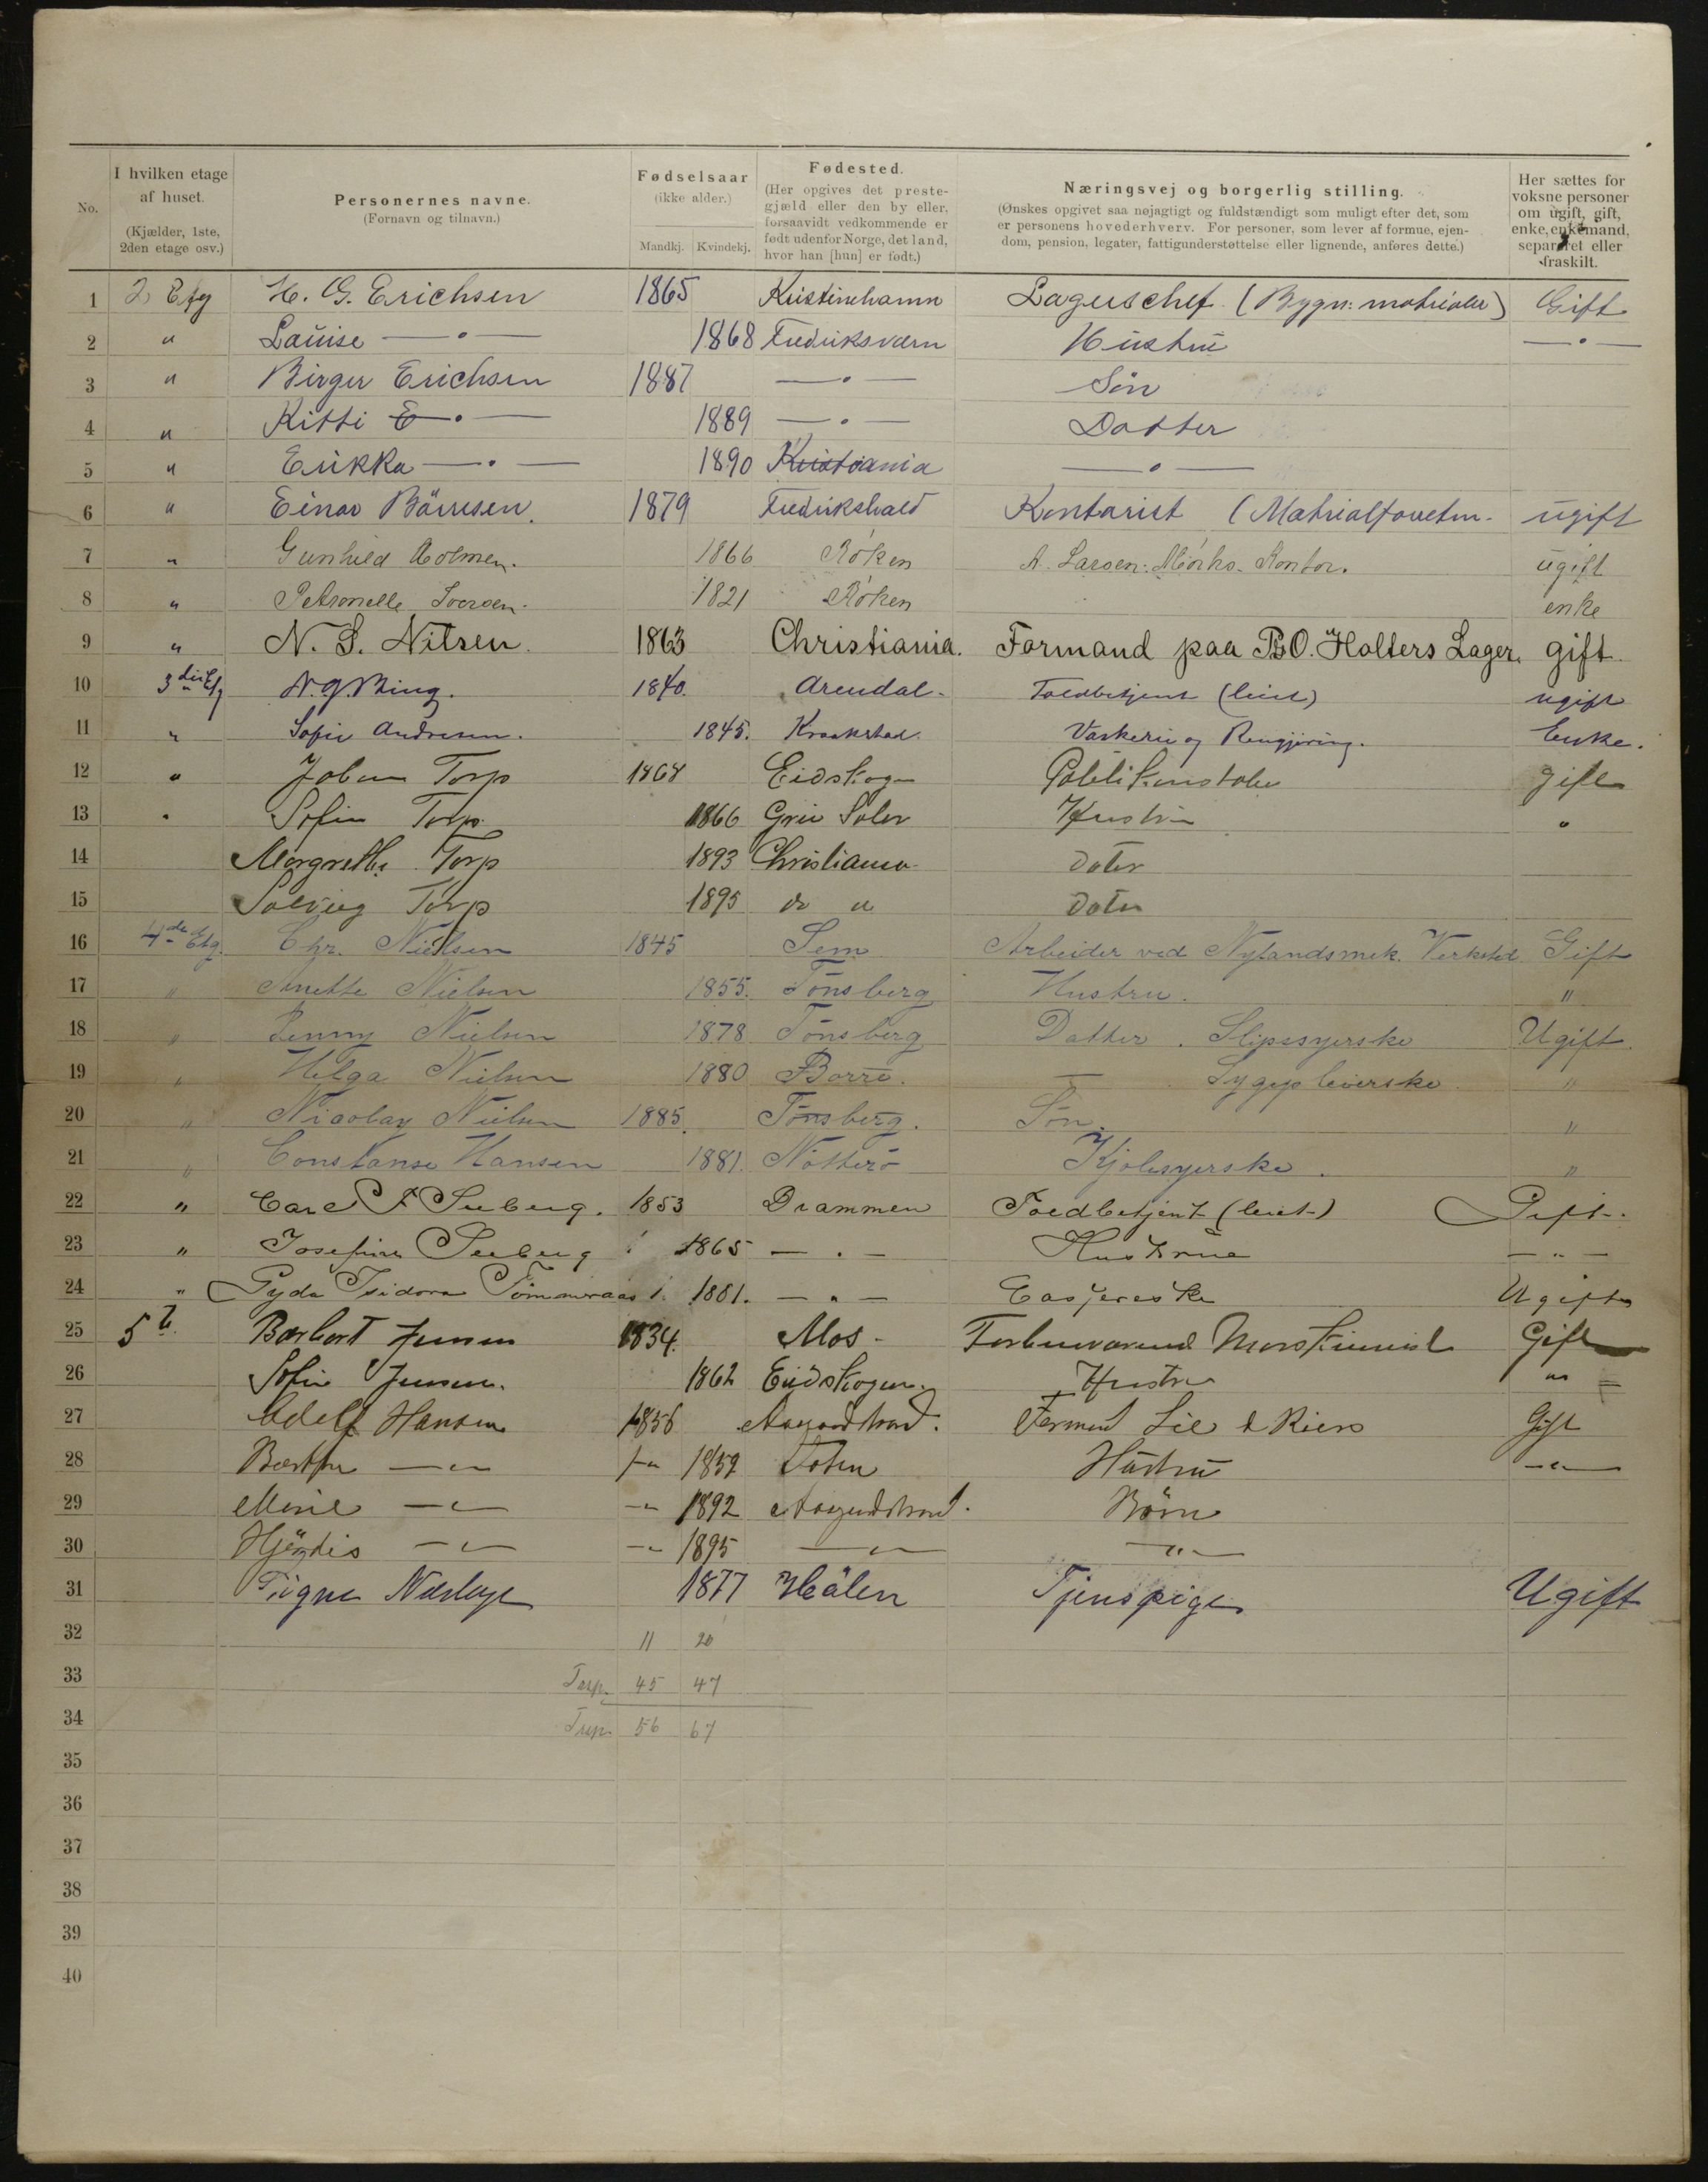 No.
I hvilken etage af huset. (Kjælder, 1ste, 2den etage osv.)
Personernes navne. (Fornavn og tilnavn.)
Fødselsaar (ikke alder.) Mandkj. Kvindekj.
Fødested. (Her opgives det prestegjæld eller den by eller, forsaavidt vedkommende er født udenfor Norge, det land, hvor han [hun] er født.)
Næringsvej og borgerlig stilling. (Ønskes opgivet saa nøjagtigt og fuldstændigt som muligt efter det, som er personens hovederhverv. For personer, som lever af formue, ejendom, pension, legater, fattigunderstøttelse eller lignende, anføres dette.)
Her sættes for voksne personer om ugift, gift, enke, enkemand, separeret eller fraskilt.
1 2 Etg H. G. Erichsen 1865 Kristinehamn Lagerschef (Bygn: matrialer) Gift
2 " Lauise — • — 1868 Fredriksværn Hustru — • —
3 " Birger Erichsen 1887 — • — Sön
4 " Kitti E — • — 1889 — • — Datter
5 " Erikka — • — 1890 Kristiania — • —
6 " Einar Börresen. 1879 Fredrikshald Kontorist (Matrialforretn. ugift
7 " Gunhild Holmen. 1866 Röken A. Larsen. Kontor. ugift
8 " Petronelle 1821 Röken enke
9 " N. S. Nilsen. 1863 Christiania. Formand paa B.O. Holters Lager. gift.
10 3die Etg N. J. Bing. 1840. Arendal. Toldbetjent (leiet) ugift
11 " Sofie Andresen. 1845. Kraakstad. Vaskeri og Rengjøring. Enke.
12 " Johan Torp 1868 Eidskog Politikonstabel gift
13 " Sofie Torp. 1866 Grue Solør Hustru "
14 Margrethe Torp 1893 Christiania Dater
15 Solveig Torp 1895 do " Dater
16 4de Etg. Chr. Nielsen 1845 Sem Arbeider ved Nylandsmek. Verksted Gift
17 " Anette Nielsen 1855. Tönsberg Hustru. "
18 " Jenny Nielsen 1878 Tönsberg Datter. Slipssyerske Ugift.
19 " Helga Nielsen 1880 Borre. — Sygepleierske "
20 " Nicolay Nielsen 1885. Tönsberg. Sön. "
21 " Constanse Hansen 1881. Nötterö Kjolesyerske. "
22 " Carl F Seeberg. 1853 Drammen Toldbetjent (leiet) Gift.
23 " Josefine Seeberg 1865 — " — Hustrue — " —
24 " Gyda Isidora 1881. — " — Ugift
25 5te Jensen 1834. Mos. Gift
26 Sofie Jensen. 1862 Eidskogen. Hustru "
27 Adolf Hansen 1856 Aasgaardstrand. Formand Lie & Gift
28 Berthe — " — 1859 Toten Hustru — " —
29 Marie — " — 1892 Aasgaardstrand. Börn
30 Hjördis — " — 1895 — " — — " —
31 1877 Hölen Tjenspige Ugift
32 11 20
33 45 47
34 56 67
35
36
37
38
39
40